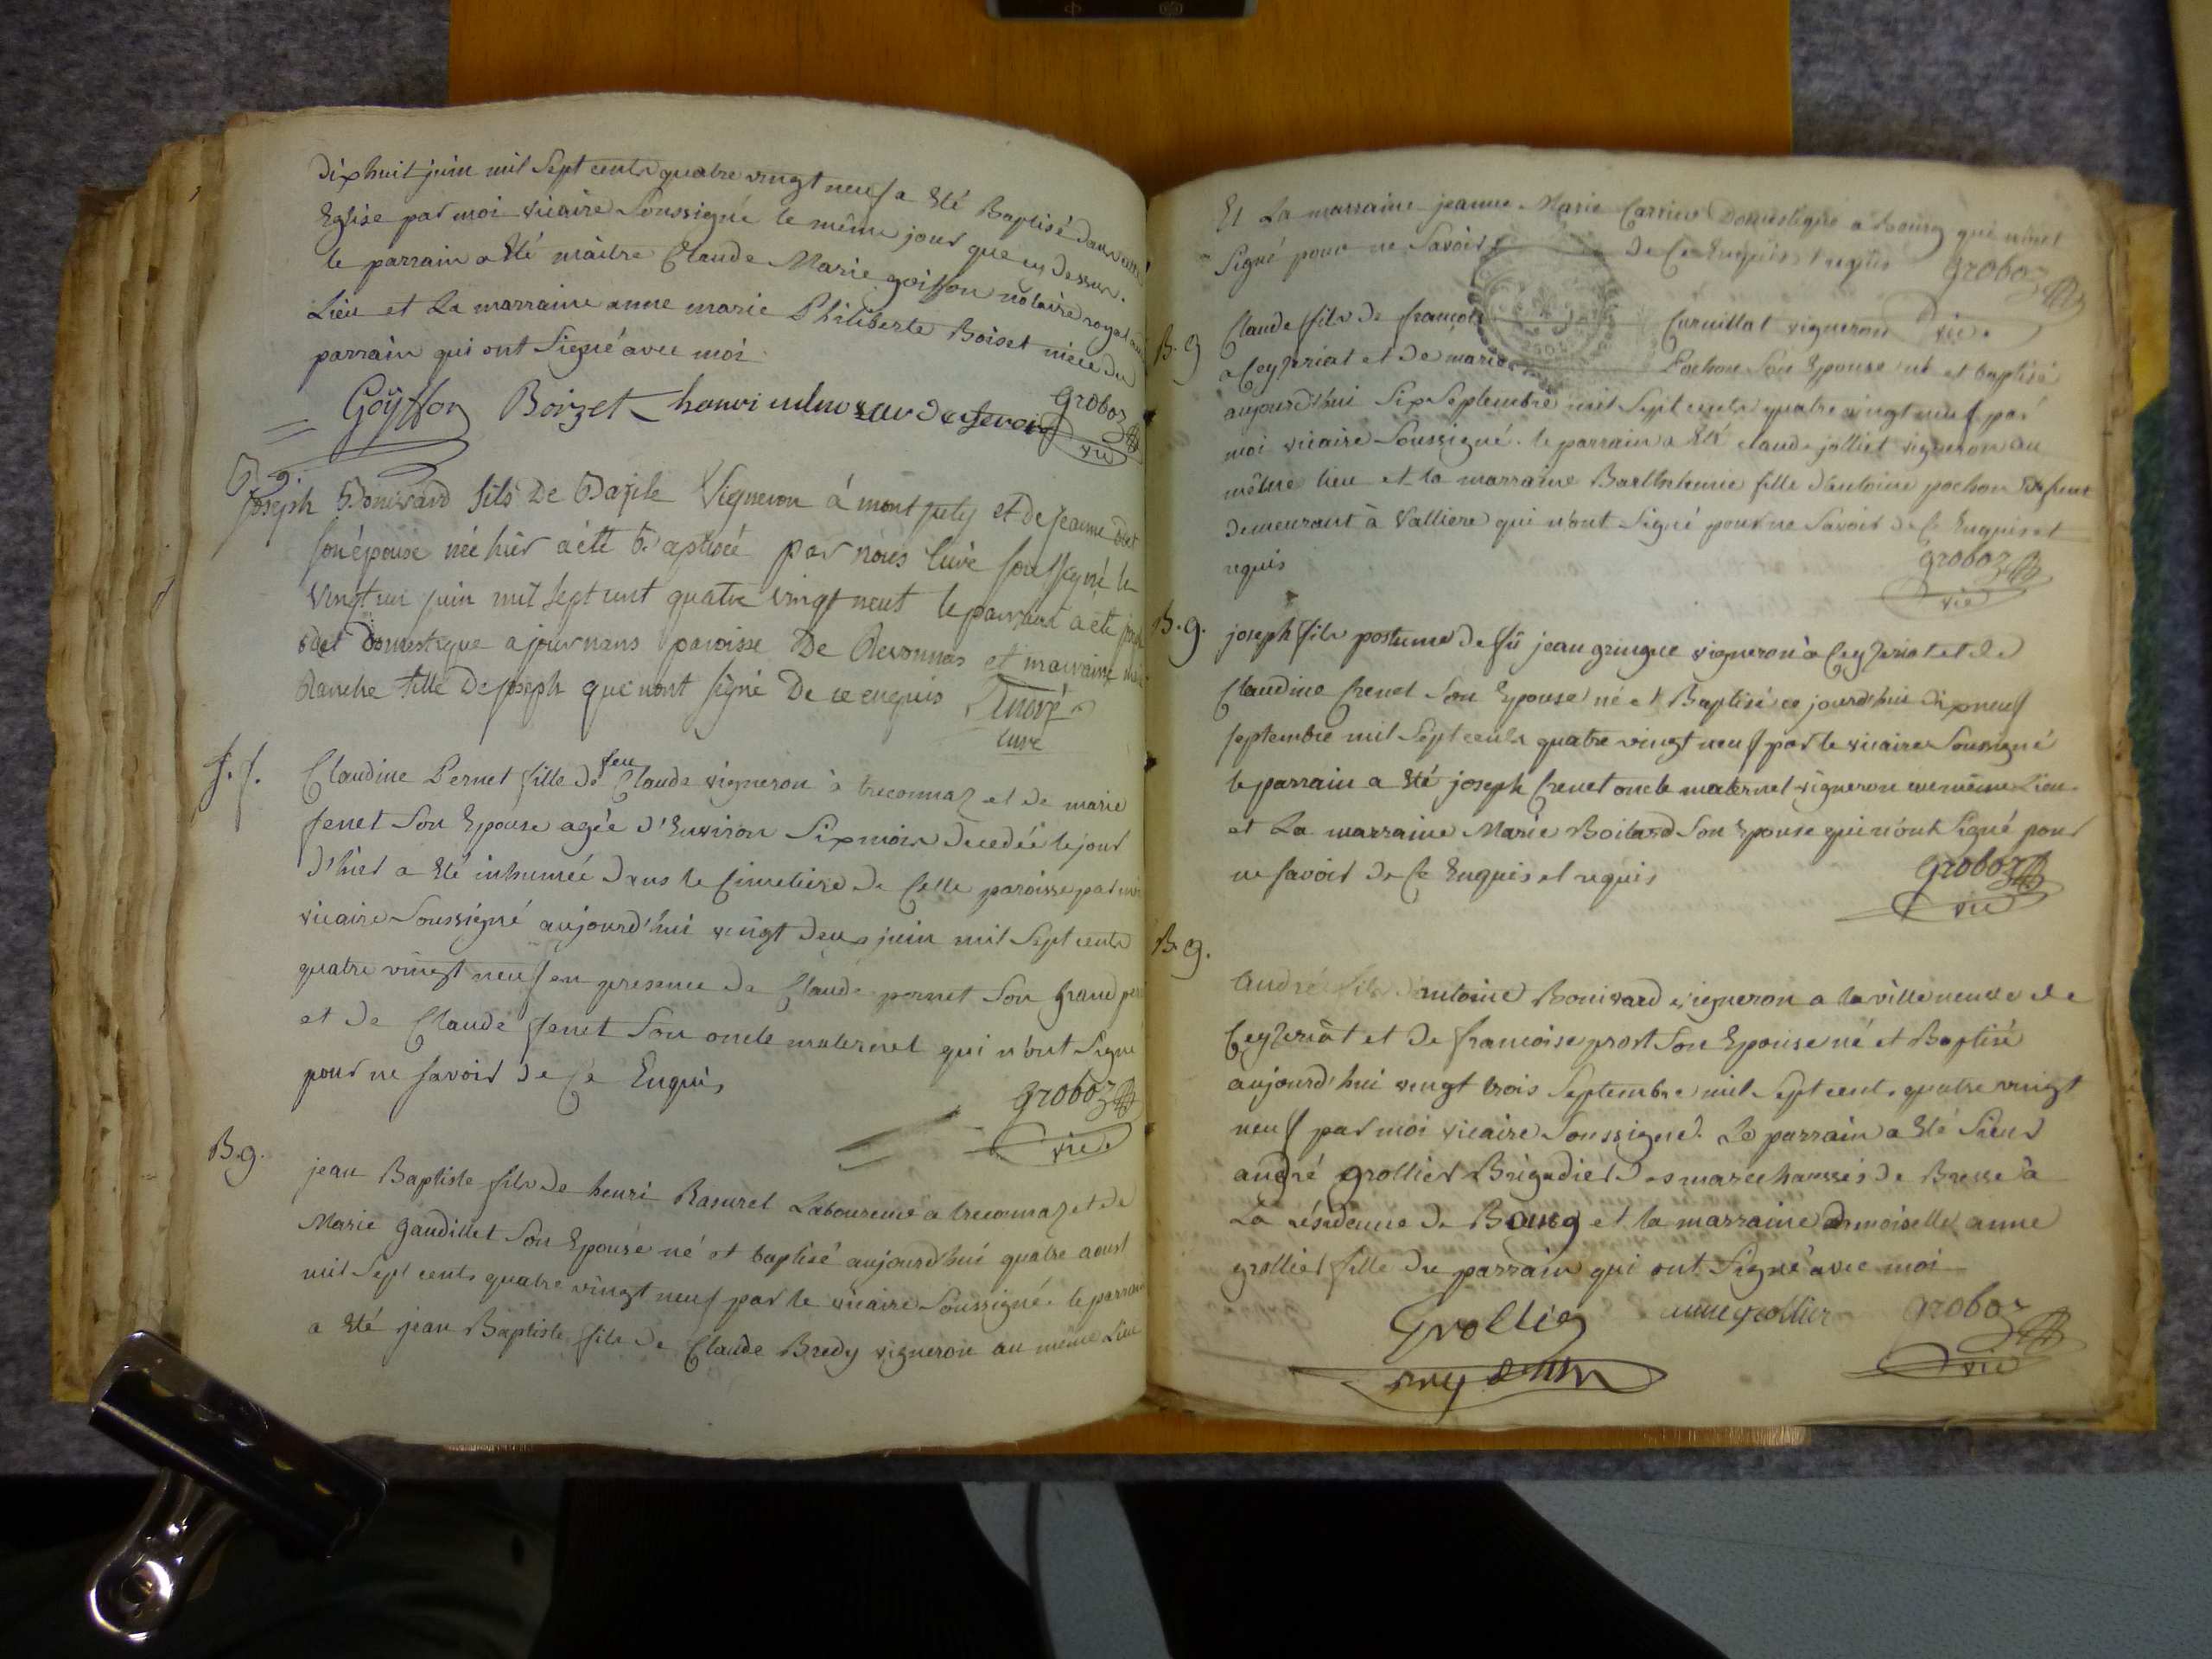 dix huit juin mil Sept cents quatre vingt neuf a Eté Baptisé dans cette
Eglise par moi vicaire Soussigné le même jour que cy dessus.
le parrain a Eté maitre Claude Marie goiffon notaire royal au
Lieu et La marraine anne marie Philiberte Boiset niece du
parrain qui ont Signé avec moi
Goÿffon Boizet henri groboz
vic
B. g.
Joseph Bonivard fils De Bazile Vigneron á mont july et de jeanne
son épouse née hier a été Baptiseé par nous Curé soussigné le
vingt un juin mil sept cent quatre vingt neuf le parrain a été
domestique a journans paroisse De Revonnas et marraine
blanche fille De joseph qui nont signé De ce enquis
Curé
f. f.
Claudine Pernet fille de feu Claude vigneron à treconnaz et de marie
fenet Son Epouse agée d'Environ Six mois decedée le jour
d'hier a Eté inhumée dans le Cimetiere de Cette paroisse par moi
vicaire Soussigné aujourd'hui vingt deux juin mil Sept cents
quatre vingt neuf en presence de Claude pernet Son grand pere
et de Claude fenet Son oncle maternel qui n'ont Signé
pour ne savoir de Ce Enquis
groboz
vic.
B. g.
jean Baptiste fils de henri Rasurel Laboureur a treconnaz et de
Marie gaudillet Son Epouse né et baptisé aujourd'hui quatre aoust
mil Sept cents quatre vingt neuf par le vicaire Soussigné. le parrain
a Eté jean Baptiste fils de Claude Bredy vigneron au même Lieu
Et La marraine jeanne Marie Carrier Domestique a bourg qui n'ont
Signé pour ne Savoir de Ce Enquis et requis groboz
vic.
B. g
Claude fils de françois Curvillat vigneron
a Ceyzeriat et de marie Pochon Son Epouse né et baptisé
aujourd'hui Six Septembre mil Sept cents quatre vingt neuf par
moi vicaire Soussigné. le parrain a Eté claude jolliet vigneron au
même lieu et la marraine Barthelemie fille d'antoine pochon
demeurant à Valliere qui n'ont Signé pour ne Savoir de Ce Enquis et
requis
groboz
vic
B. g.
joseph fils postume de fû jean gringue vigneron à Ceyzeriat et de
Claudine Crenet Son Epouse né et Baptisé ce jourd'hui dix neuf
septembre mil Sept cents quatre vingt neuf par le vicaire Soussigné
le parrain a Eté joseph Crenet oncle maternel vigneron au même Lieu
et La marraine Marie Boilard Son Epouse qui n'ont Signé pour
ne savoir de Ce Enquis et requis
groboz
vic
B. g.
andré fils d'antoine Bonivard vigneron a la ville neuve de
Ceyzeriat et de francoise prost Son Epouse né et Baptisé
aujourd'hui vingt trois Septembre mil Sept cents quatre vingt
neuf par moi vicaire Soussigné. Le parrain a Eté Sieur
andré grollier Brigadier des marechaussés de Bresse à
La résidence de Bourg et la marraine demoiselle anne
grollier fille du parrain qui ont Signé avec moi
Grollier anne grollier groboz
vic